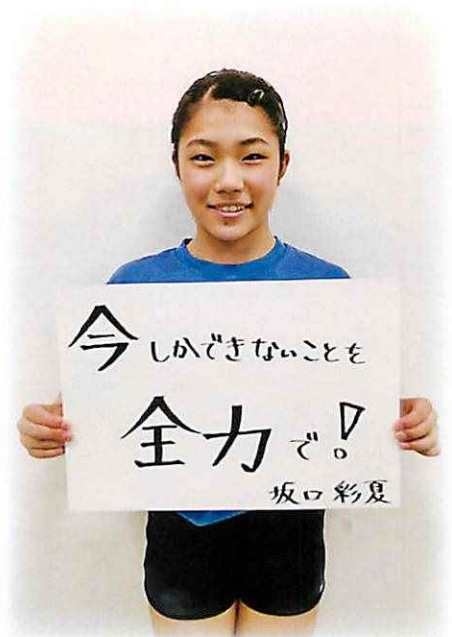 今しかできないことを
全力で!
坂口彩夏